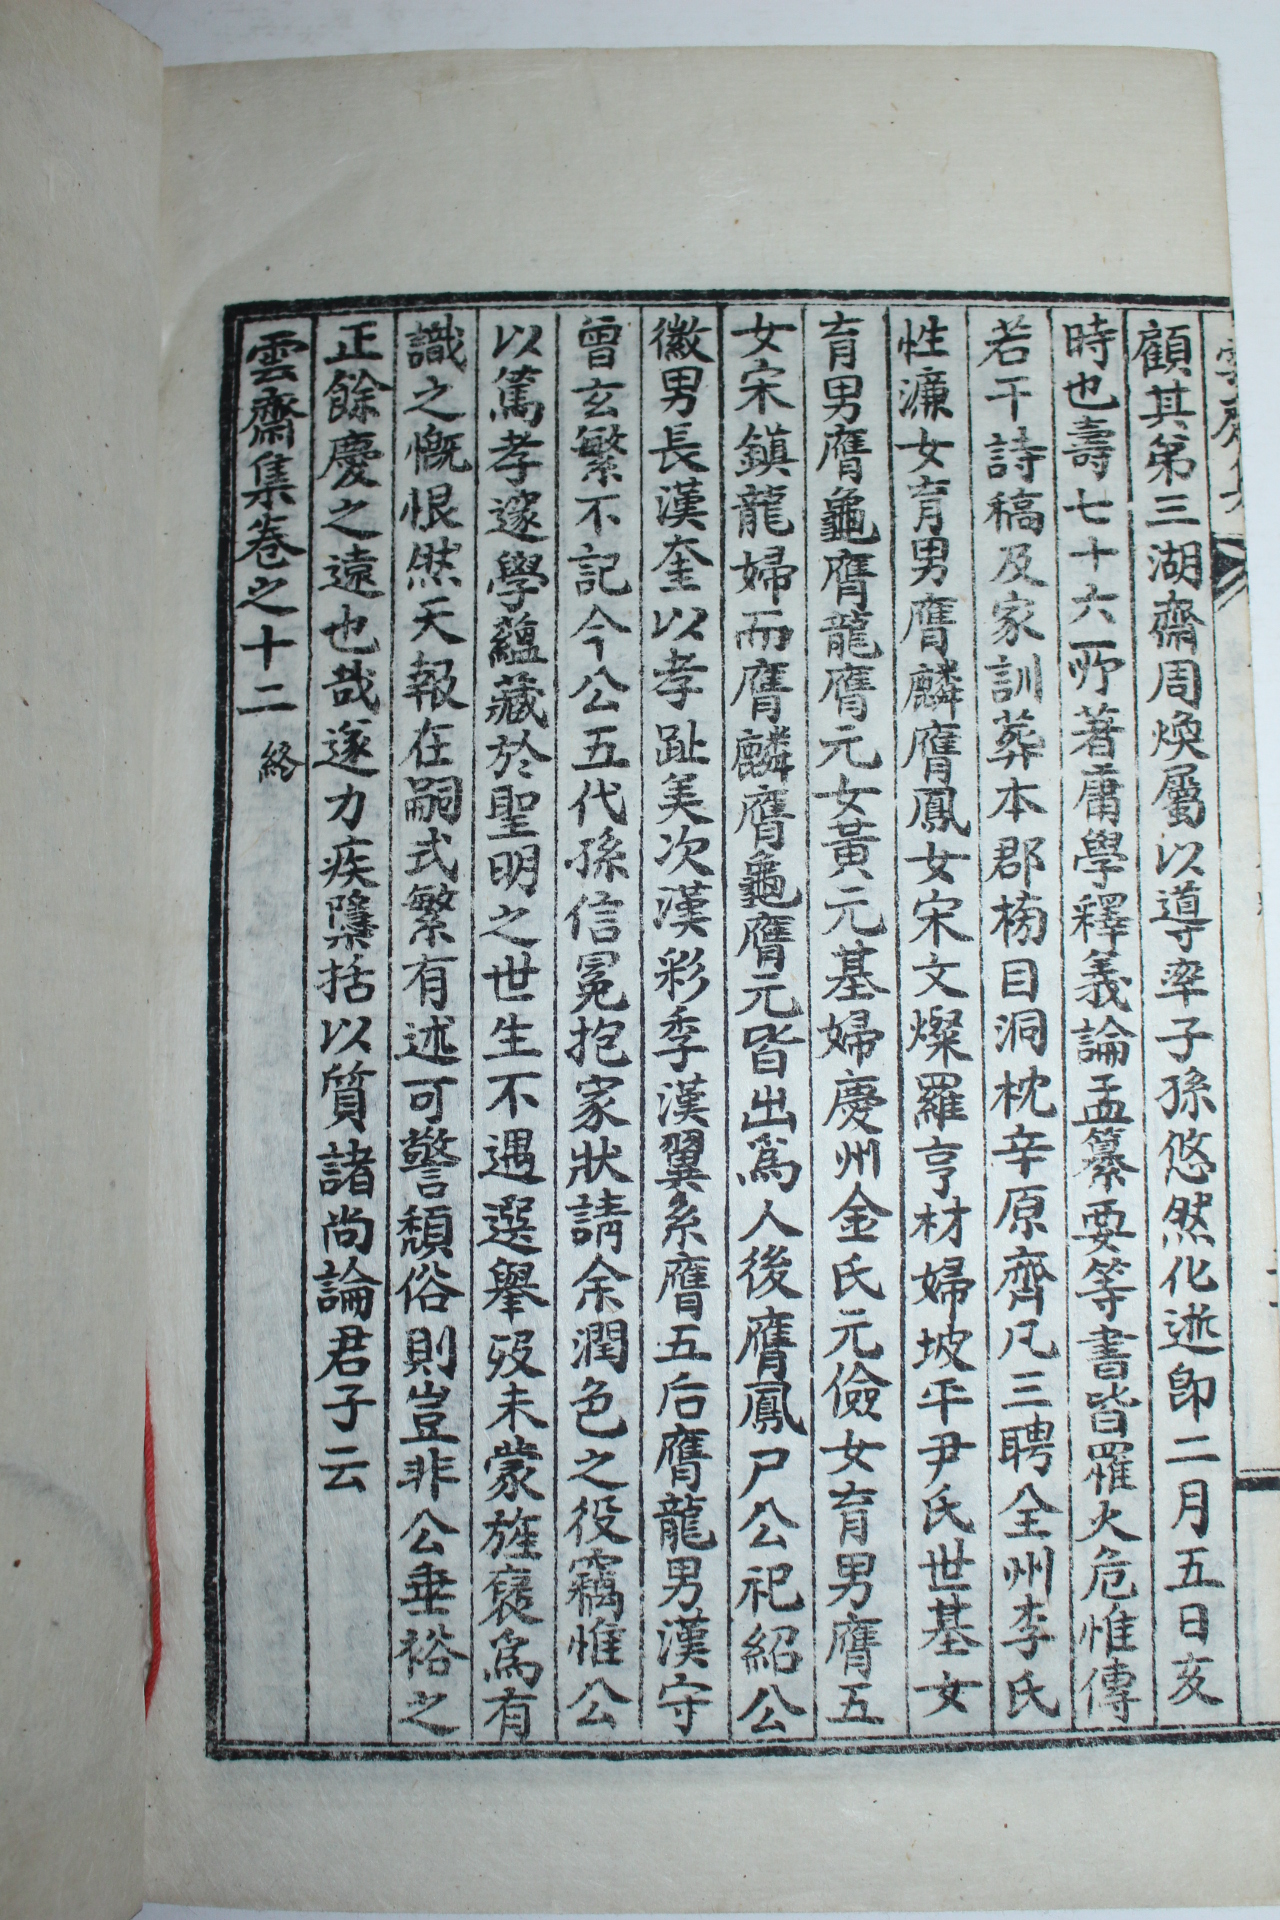 顧其第三湖齋周煥屬以導率子孫悠然化逝卽二月五日亥
時也壽七十六所著庸學釋義論孟纂要等書皆罹火危惟傳
若干詩稿及家訓葬本郡栴目洞枕辛原齊凡三聘全州李氏
性濂女育男膺麟膺鳳女宋文燦羅亨材婦坡平尹氏世基女
育男膺龜膺龍膺元女黃元基婦慶州金氏元儉女育男膺五
女宋鎭龍婦而膺麟膺龜膺元皆出爲人後膺鳳尸公祀紹公
徽男長漢奎以孝趾美次漢彩季漢翼系膺五后膺龍男漢守
曾玄繁不記今公五代孫信冕抱家狀請余潤色之役竊惟公
以篤孝邃學蘊藏於聖明之世生不遇選擧歿未蒙旌褒爲有
識之慨恨然天報在嗣式繁有述可警頹俗則豈非公垂裕之
正餘慶之遠也哉遂力疾檃括以質諸尙論君子云
雲齋集卷之十二 終